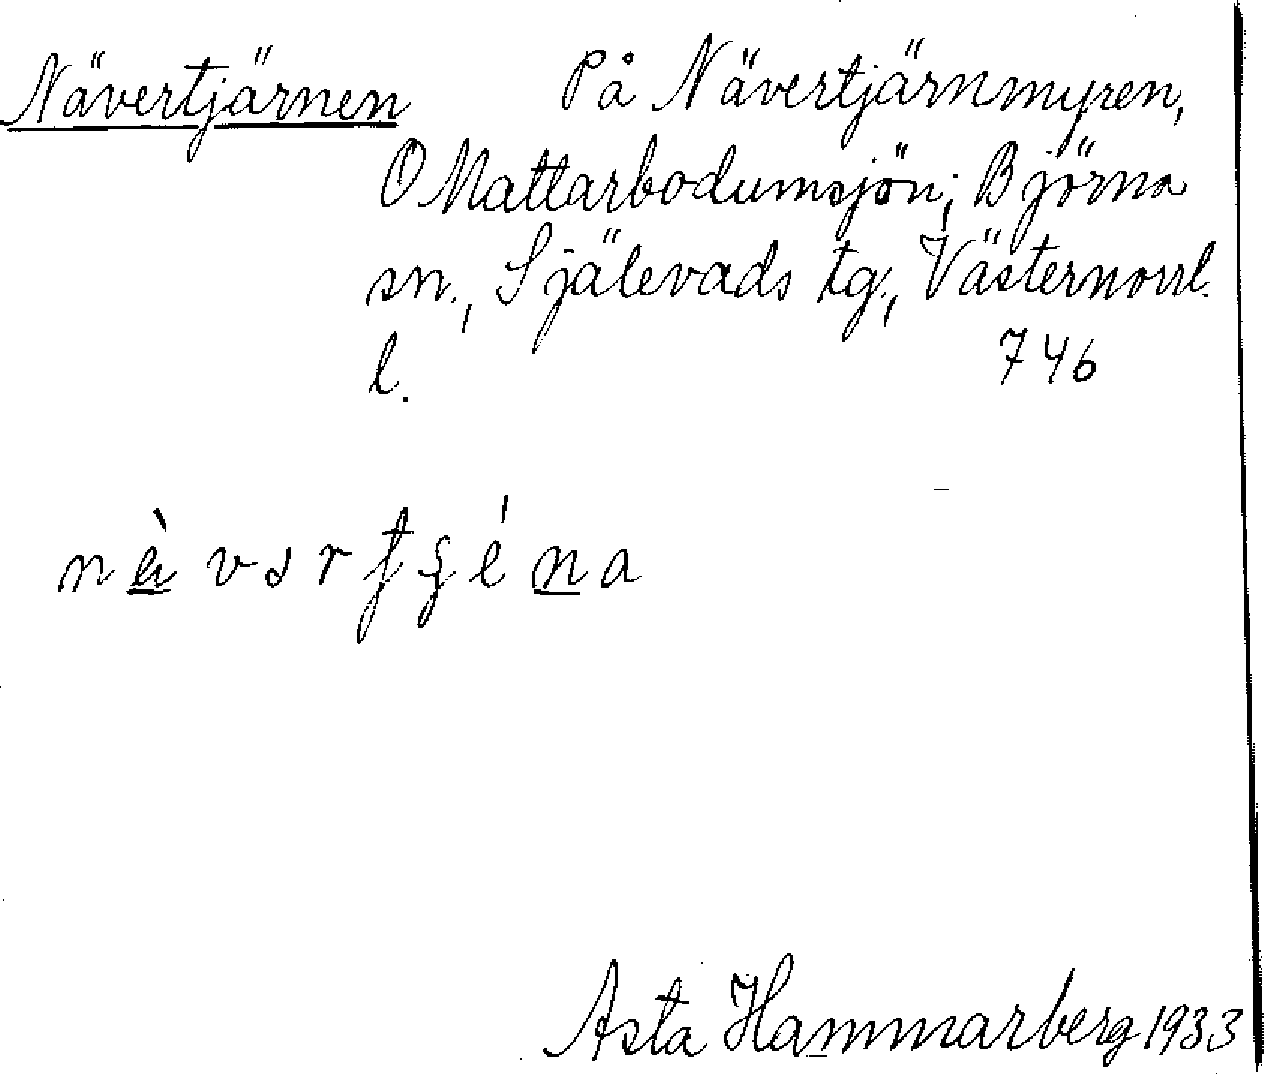 Nävertjärnen På Nävertjärnmyren,
O Mattarbodumsjön; Björna
sn., Själevads tg., Västernorrl.
l. 746
Asta Hammarberg 1933